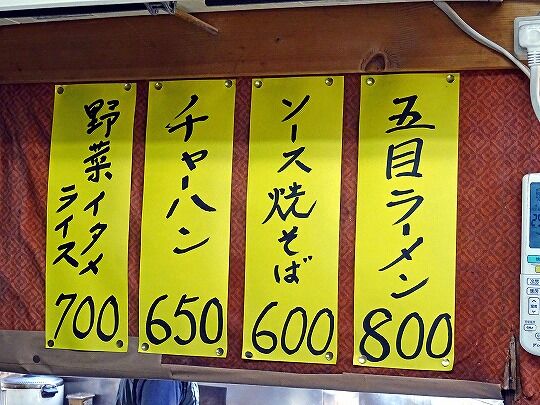 五目ラーメン
800
ソース焼そば
600
チャーハン
650
野菜イタメ
ライス
700